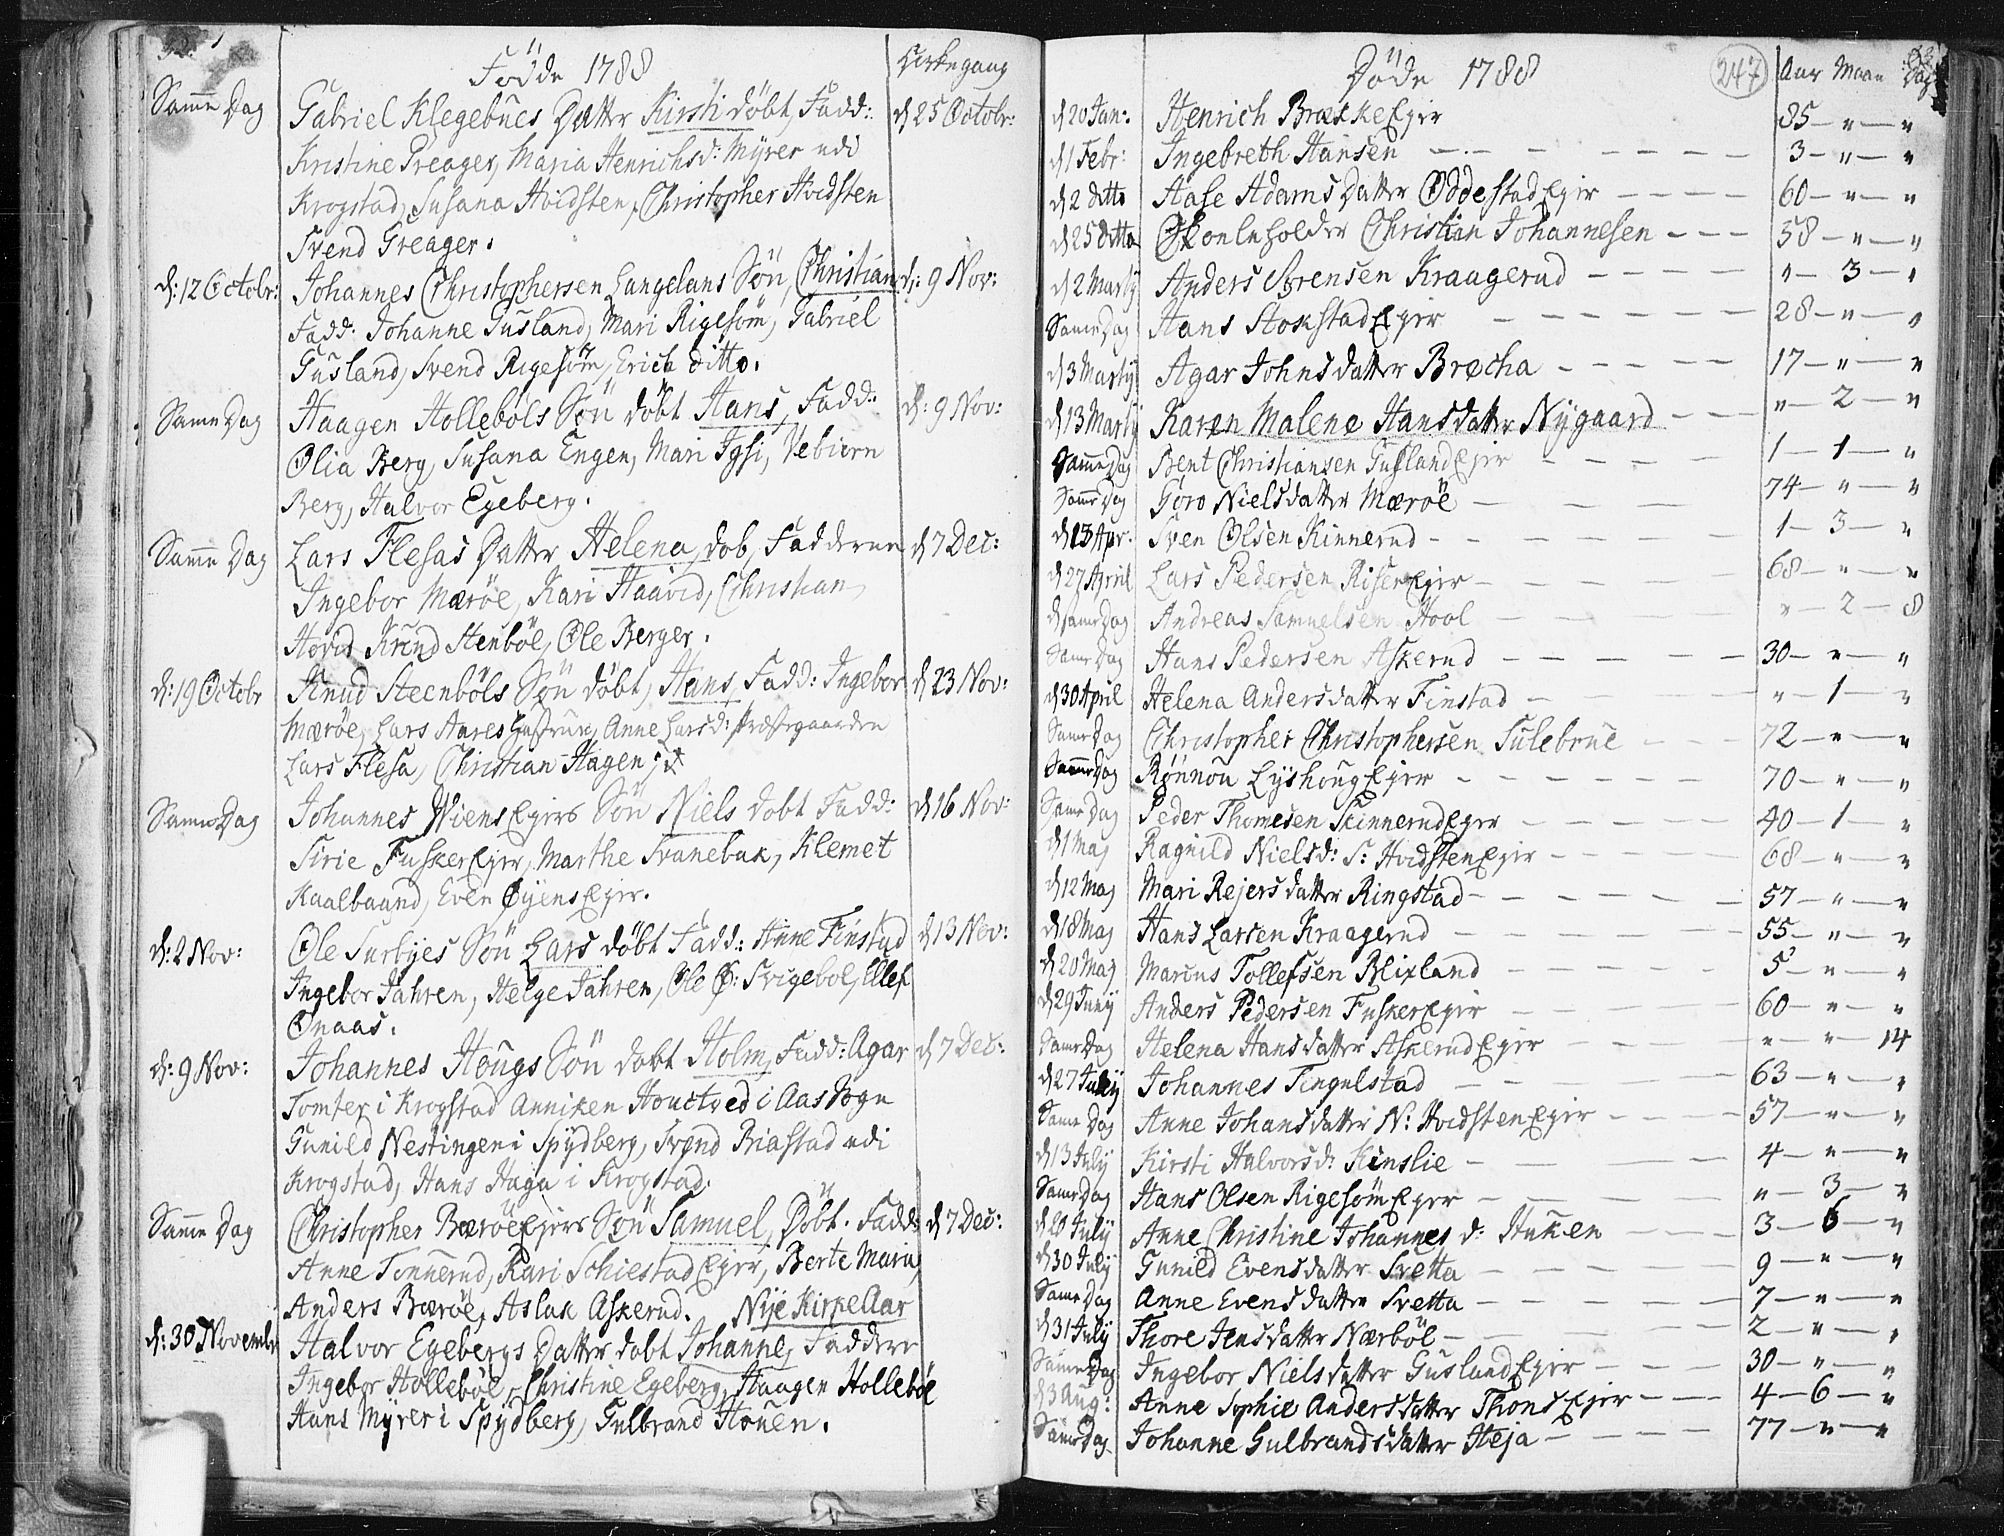 Föde 1788
Kirkegang
Same Dag
Gabriel Klegebües Datter Kirsti döbt, Fadd:
d 25 Octobr:
Kristine Preager, Maria Henrichsd: Myrer udi
Krogstad, Susana Hvidsten, Christopher Hvidsten
Svend Greager.
d: 12 Octobr:
Johannes Christophersen Langelans Sön, Christian
d: 9 Nov:
Fadd: Johanne Gusland, Mari Rigesöm, Gabriel
Gusland, Svend Rigesöm, Erich ditto.
Same Dag
Haagen Holleböls Sön döbt Hans, Fadd:
d: 9 Nov:
Olia Berg, Susana Engen, Mari Igsi, Vebiern
Berg, Halvor Egeberg.
Same Dag
Lars Flesas Datter Helena, döb, Fadderne
d 7 Dec:
Ingebor Mæröe, Kari Haavid, Christian
Knud Stenböl, Ole Berger.
d: 19 Octobr
Knud Steenböls Sön döbt, Hans, Fadd: Ingebor
d 23 Nov:
Mæröe, Lars Aares Hustrue, Anne Larsd: Præstegaarden
Lars Flesa, Christian Hagen;
Same Dag
Johannes Wiens Ejers Sön Niels dobt Fadd:
d 16 Nov:
Sirie Fusker Ejer, Marthe Tranebak, Klemet
Kaalbaand, Even Öyens Ejer.
d: 2 Nov:
Ole Surbyes Sön Lars döbt Fadd: Anne Finstad
d 13 Nov:
Ingebor Jahren, Helge Jahren, Ole Ø: Svigebol, Ellef
Onaas.
d: 9 Nov:
Johannes Hougs Sön dobt Holm, Fadd: Agar
d 7 Dec:
Tomter i Krogstad Anniken Houctved i Aas Sogn
Gunild Nestingen i Spydberg, Svend Riastad udi
Krogstad, Hans Haga i Krogstad.
Same Dag
Christopher Bæröe Ejers Sön Samuel, Döbt. Fadd:
d 7 Dec:
Anne Tonnerud, Kari Schiestad Ejer, Berte Maria,
Anders Bæröe, Aslak Askerud. Nye Kirke Aar
d: 30 Novembr
Halvor Egebergs Datter dobt Johanne, Faddere
Ingebor Holleböl, Christine Egeberg, Haagen Holleböl
Hans Myrer i Spydberg, Gulbrand Houen.
Döde 1788
247
Aar Maan Dag
d 20 Jan: Henrich Bræske Ejer 85 — " — "
d 1 Febr: Ingebreth Hansen 3 — " — "
d 2 ditto Aase Adams Datter Oddestad Ejer 60 — " — "
d 25 ditto Skoleholder Christian Johannesen 58 — " — "
d 2 Marty Anders Sørensen Kraagerud " — 3 — "
Same Dag Hans Stokstad Ejer 28 — " — "
d 3 Marty Agar Johnsdatter Brecha 17 — " — "
d 13 Marty Karen Malene Hansdatter Nygaard " — 2 — "
Same Dag Bent Christiansen Gusland Ejer 1 — 1 — "
Same Dag Goro Nielsdatter Mæröe 74 — " — "
d 13 Apr: Sven Olsen Kinnerud 1 — 3 — "
d 27 April Lars Pedersen Riser Ejer 68 — " — "
d same Dag Andreas Samuelsen Hool " — 2 — 8
Same Dag Hans Pedersen Askerud 30 — " — "
d 30 April Helena Andersdatter Finstad " — 1 — "
Same Dag Christopher Christophersen Sulebrue 72 — " — "
Same Dag Rønnou Lyshoug Ejer 70 — " — "
Same Dag Peder Thomesen Kinnerud Ejer 40 — 1 — "
d 1 Maj Ragnild Nielsd: S: Hvidsten Ejer 68 — " — "
d 12 Maj Mari Rejersdatter Ringstad 57 — " — "
d 18 Maj Hans Larsen Kraagerud 55 — " — "
d 20 Maj Marcus Tollefsen Blixland 5 — " — "
d 29 Juny Anders Pedersen Fusker Ejer 60 — " — "
Same Dag Helena Hansdatter Askerud Ejer " — " — 14
d 27 July Johannes Tingulstad 63 — " — "
Same Dag Anne Johansdatter N: Hvidsten Ejer 57 — " — "
d 13 July Kirsti Halvorsd: Kinslie 4 — " — "
Same Dag Hans Olsen Rigesöm Ejer " — 3 — "
d 20 July Anne Christine Johannes d: Huken 3 — 6 — "
d 30 July Gunild Evensdatter Tretta 9 — " — "
Same Dag Anne Evensdatter Tretta 7 — " — "
d 31 July Thore Jensdatter Nærböl 2 — " — "
Same Dag Ingebor Nielsdatter Gusland Ejer 30 — " — "
d 3 Aug: Anne Sophie Andersdatter Thons Ejer 4 — 6 — "
Same Dag Johanne Gulbrandsdatter Heja 77 — " — "